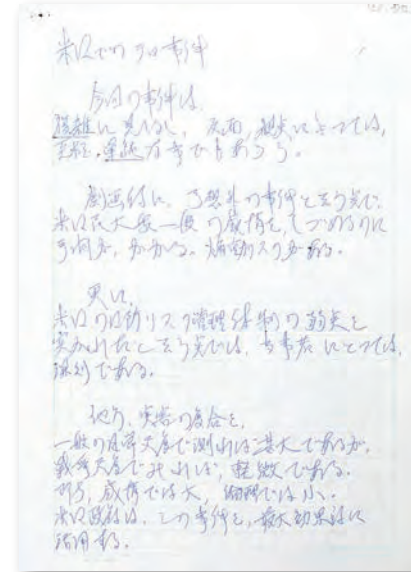 米国でのテロ事件
今回の事件は、
複雑に見えるし、反面、観点によっては、
至極、単純な事でもあろう。
劇画的に、予想外の事件と云う点で、
米国民大衆一般の感情を、しづめるのに
手間が、かかる。煽動リスクが有る。
更に、
米国の国防リスク管理体制の弱点を
突かれたと云う点では、当事者にとっては、
深刻である。
他方、実害の度合を、
一般の日常尺度で測れば甚大であるが、
戦争尺度でみれば、軽微である。
即ち、感情では大、物理では小。
米国政府は、この事件を、最大効果的に
活用する。